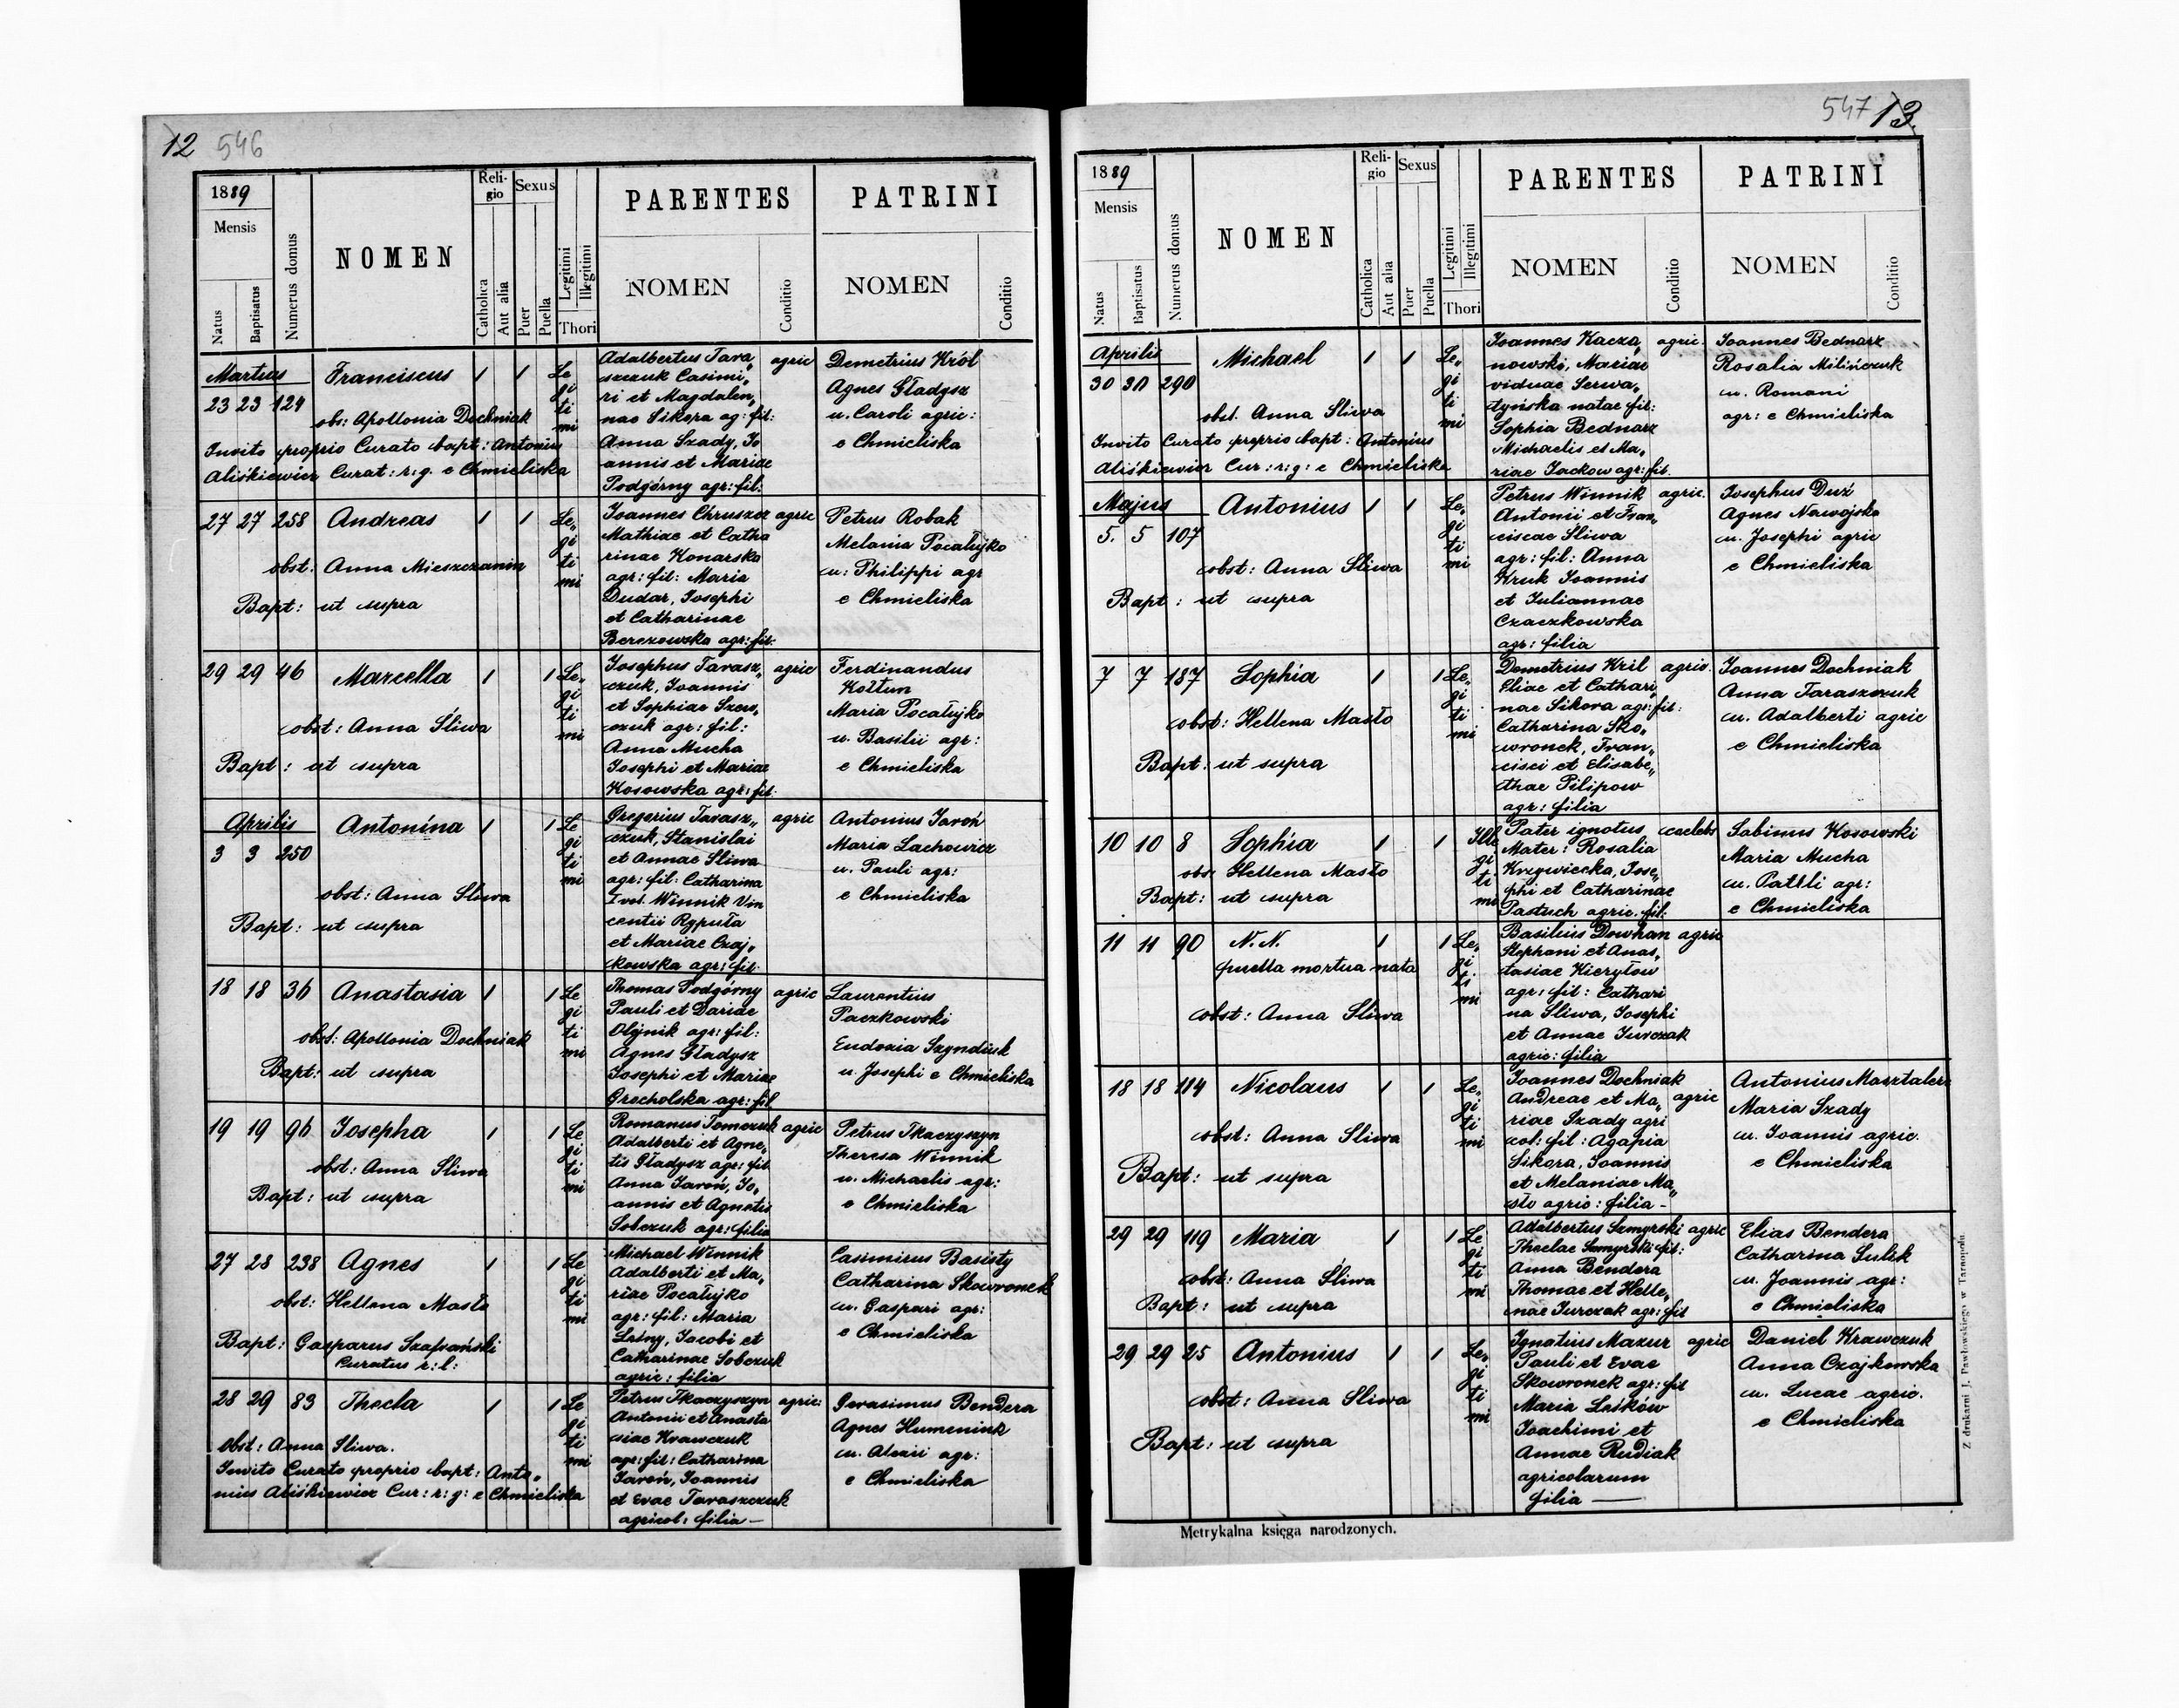 12 546
1889
Mensis
Natus
Baptisatus
Numerus domus
NOMEN
Reli-
gio
Catholica
Aut alia
Sexus
Puer
Puella
Legitimi
Illegitimi
Thori
PARENTES
NOMEN
Conditio
PATRINI
NOMEN
Conditio
Martius
23 23 124
Franciscus 1 1
obs: Apollonia Dochniak
Invito proprio Curato bapt: Antonius
Aliśkiewicz Curat: r: g: e Chmieliska
Le
gi
ti
mi
Adalbertus Tara„ agric
szczuk Casimi„
ri et Magdalen„
nae Sikora ag: fil:
Anna Szady, Jo
annis et Mariae
Podgórny agr: fil:
Demetrius Król
Agnes Gładysz
u. Caroli agric:
e Chmieliska
27 27 258 Andreas 1 1
obst: Anna Mieszczanin
Bapt: ut supra
Le„
gi
ti
mi
Joannes Chruszcz agric
Mathiae et Catha
rinae Konarska
agr: fil: Maria
Dudar, Josephi
et Catharinae
Berezowska agr: fil.
Petrus Robak
Melania Pocałujko
u: Philippi agr
e Chmieliska
29 29 46 Marcella 1 1
obst: Anna Śliwa
Bapt: ut supra
Le„
gi
ti
mi
Josephus Tarasz„ agric
czuk, Joannis
et Sophiae Szew„
czuk agr: fil:
Anna Mucha
Josephi et Mariae
Kosowska agr: fil.
Ferdinandus
Kołtun
Maria Pocałujko
u. Basilii agr:
e Chmieliska
Aprilis
3 3 250
Antonina 1 1
obst: Anna Sliwa
Bapt: ut supra
Le
gi
ti
mi
Gregorius Tarasz„ agric
czuk, Stanislai
et Annae Sliwa
agr: fil: Catharina
I vol. Winnik Vin
centii Rypuła
et Mariae Czaj„
kowska agr: fil.
Antonius Jaroń
Maria Lachowicz
u. Pauli agr:
e Chmieliska
18 18 36 Anastasia 1 1
obst: Apollonia Dochniak
Bapt: ut supra
Le
gi
ti
mi
Thomas Podgórny agric
Pauli et Dariae
Olijnik agr: fil:
Agnes Gładysz
Josephi et Mariae
Grocholska agr: fil
Laurentius
Paczkowski
Eudoxia Szyndiuk
u. Josephi e Chmieliska
19 19 96 Josepha 1 1
obst: Anna Sliwa
Bapt: ut supra
Le
gi
ti
mi
Romanus Tomczuk agric
Adalberti et Agne„
tis Gładysz agr: fil.
Anna Jaroń, Jo„
annis et Agnetis
Sobczuk agr: filia
Petrus Tkaczyszyn
Theresa Winnik
u. Michaelis agr:
e Chmieliska
27 28 238 Agnes 1 1
obst: Hellena Masło
Bapt: Gasparus Szafrański
Curatus r: l:
Le
gi
ti
mi
Michael Winnik
Adalberti et Ma„
riae Pocałujko
agr: fil: Maria
Leśny, Jacobi et
Catharinae Sobczuk
agric: filia
Casimirus Basisty
Catharina Skowronek
u. Gaspari agr:
e Chmieliska
28 29 83 Thecla 1 1
obst: Anna Sliwa.
Invito Curato proprio bapt: Anto„
nius Aliśkiewicz Cur: r: g: e Chmieliska
Le
gi
ti
mi
Petrus Tkaczyszyn agric:
Antonii et Anasta
siae Krawczuk
agr: fil: Catharina
Jaroń, Joannis
et Evae Taraszczuk
agricol: filia —
Gerasimus Bendera
Agnes Humeniuk
u. Alexii agr:
e Chmieliska
547 13.
1889
Mensis
Natus
Baptisatus
Numerus domus
NOMEN
Reli-
gio
Catholica
Aut alia
Sexus
Puer
Puella
Legitimi
Illegitimi
Thori
PARENTES
NOMEN
Conditio
PATRINI
NOMEN
Conditio
Aprilis
30 30 290
Michael 1 1
obst. Anna Sliwa
Invito Curato proprio bapt: Antonius
Aliśkiewicz Cur: r: g: e Chmieliska
Le„
gi
ti
mi
Joannes Kacza„ agric.
nowski, Mariae
viduae Serwa„
tyńska natae fil:
Sophia Bednarz
Michaelis et Ma„
riae Jackow agr: fil.
Joannes Bednarz
Rosalia Milińczuk
u. Romani
agr: e Chmieliska
Majus
5. 5 107
Antonius 1 1
obst: Anna Sliwa
Bapt: ut supra
Le„
gi
ti
mi
Petrus Winnik agric.
Antonii et Fran„
ciscae Sliwa
agr: fil: Anna
Kruk Joannis
et Juliannae
Czaczkowska
agr: filia
Josephus Duź
Agnes Nawojska
u. Josephi agric
e Chmieliska
7 7 187 Sophia 1 1
obst: Hellena Masło
Bapt: ut supra
Le„
gi
ti
mi
Demetrius Kril agric.
Eliae et Cathari„
nae Sikora agr: fil:
Catharina Sko„
wronek, Fran„
cisci et Elisabe„
thae Pilipow
agr: filia
Joannes Dochniak
Anna Taraszczuk
u. Adalberti agric
e Chmieliska
10 10 8 Sophia 1 1
obs: Hellena Masło
Bapt: ut supra
Ille
gi
ti
mi
Pater ignotus, caelebs
Mater: Rosalia
Krzywiecka, Jose„
phi et Catharinae
Pastuch agric. fil:
Sabinus Kosowski
Maria Mucha
u. Paulli agr:
e Chmieliska
11 11 90 N. N. 1 1
puella mortua nata
obst: Anna Sliwa
Le„
gi
ti
mi
Basilius Dowhan agric
Stephani et Anas„
tasiae Kieryłow
agr: fil: Cathari
na Sliwa, Josephi
et Annae Jurczak
agric: filia
18 18 114 Nicolaus 1 1
obst: Anna Sliwa
Bapt: ut supra
Le„
gi
ti
mi
Joannes Dochniak
Andreae et Ma„ agric
riae Szady agri
col: fil: Agapia
Sikora, Joannis
et Melaniae Ma„
sło agric: filia -
Antonius Marztalerz
Maria Szady
u. Joannis agric.
e Chmieliska
29 29 119 Maria 1 1
obst: Anna Śliwa
Bapt: ut supra
Le
gi
ti
mi
Adalbertus Szmyrski agric
Theclae Szmyrski fil:
Anna Bendera
Thomae et Helle„
nae Jurczak agr: fil
Elias Bendera
Catharina Sulik
u. Joannis agr:
e Chmieliska
29 29 25 Antonius 1 1
obst: Anna Sliwa
Bapt: ut supra
Le„
gi
ti
mi
Ignatius Mazur agric
Pauli et Evae
Skowronek agr: fil
Maria Leśków
Joachimi et
Annae Rudiak
agricolarum
filia —
Daniel Krawczuk
Anna Czajkowska
u. Lucae agric.
e Chmieliska
Metrykalna księga narodzonych.
Z drukarni J. Pawłowskiego w Tarnopolu.